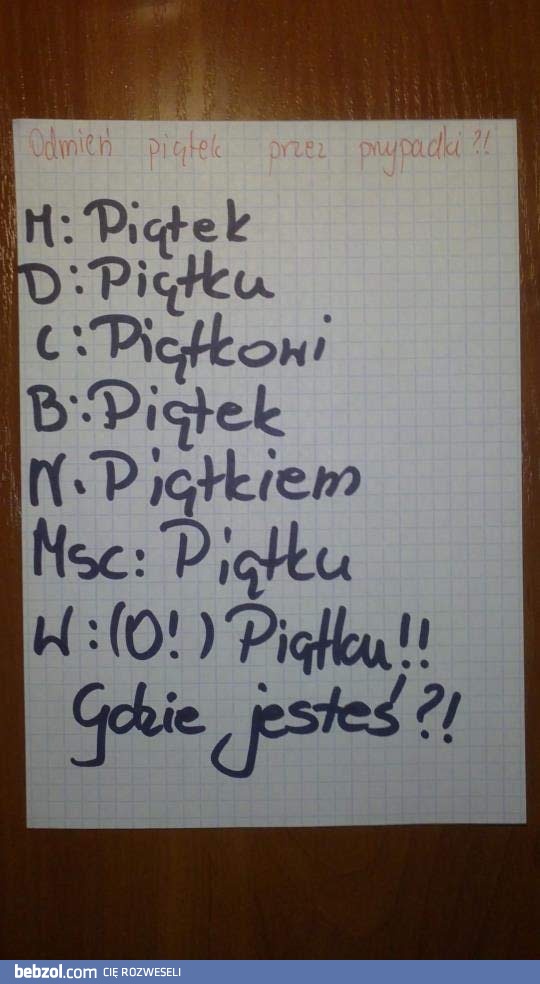 Odmień piątek przez przypadki?!
M: Piątek
D: Piątku
C: Piątkowi
B: Piątek
N. Piątkiem
Msc: Piątku
W: (O!) Piątku!!
Gdzie jesteś?!
bebzol.com CIĘ ROZWESELI